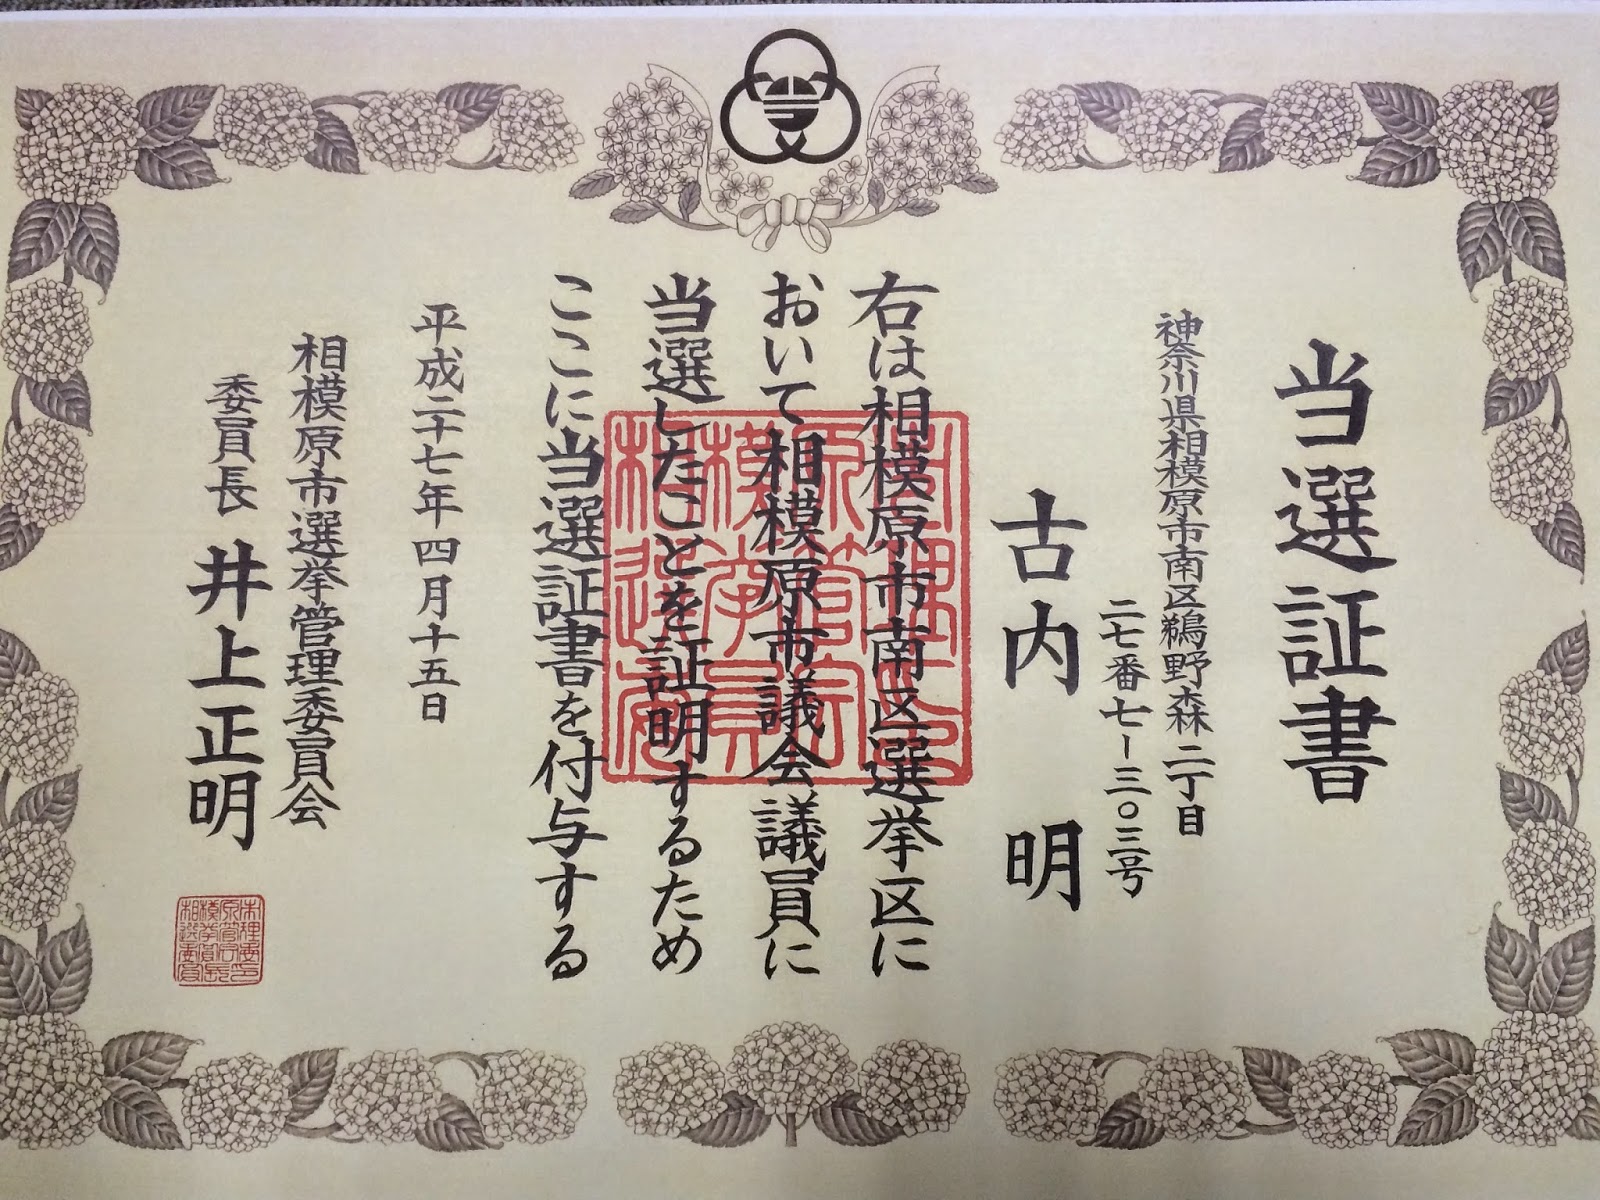 当選証書
神奈川県相模原市南区鵜野森二丁目
二七番七-三〇三号
古内 明
右は相模原市南区選挙区に
おいて相模原市議会議員に
当選したことを証明するため
ここに当選証書を付与する
平成二十七年四月十五日
相模原市選挙管理委員会
委員長 井上正明